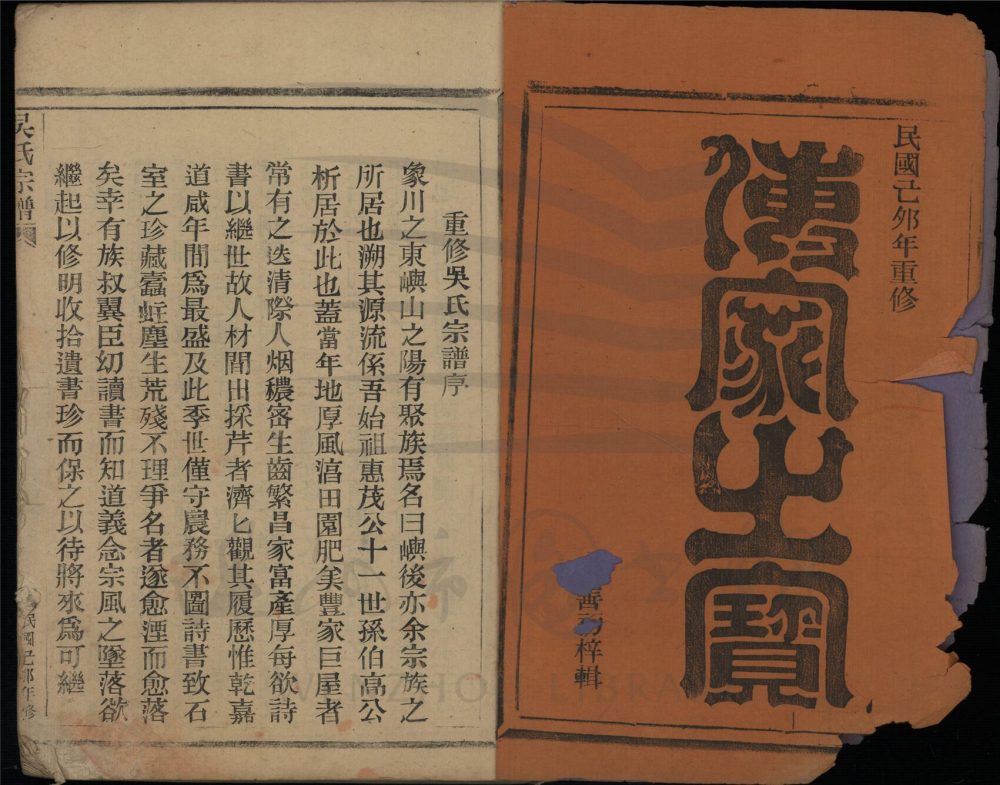 民國己夘年重修
傳家之寶
善初梓輯
重修吳氏宗譜序
象川之東嶼山之陽有聚族焉名曰嶼後亦余宗族之
所居也溯其源流係吾始祖惠茂公十一世孫伯高公
析居於此也蓋當年地厚風湻田園肥美豐家巨屋者
常有之迭清際人烟穠密生齒繁昌家富產厚每欲詩
書以繼世故人材間出採芹者濟匕觀其履歷惟乾嘉
道咸年間爲最盛及此季世僅守農務不圖詩書致石
室之珍藏蠹蛀塵生荒殘不理爭名者遂愈湮而愈落
矣幸有族叔翼臣幼讀書而知道義念宗風之墜落欲
繼起以修明收拾遺書珍而保之以待將來爲可繼
吳氏宗譜
民國己夘年修